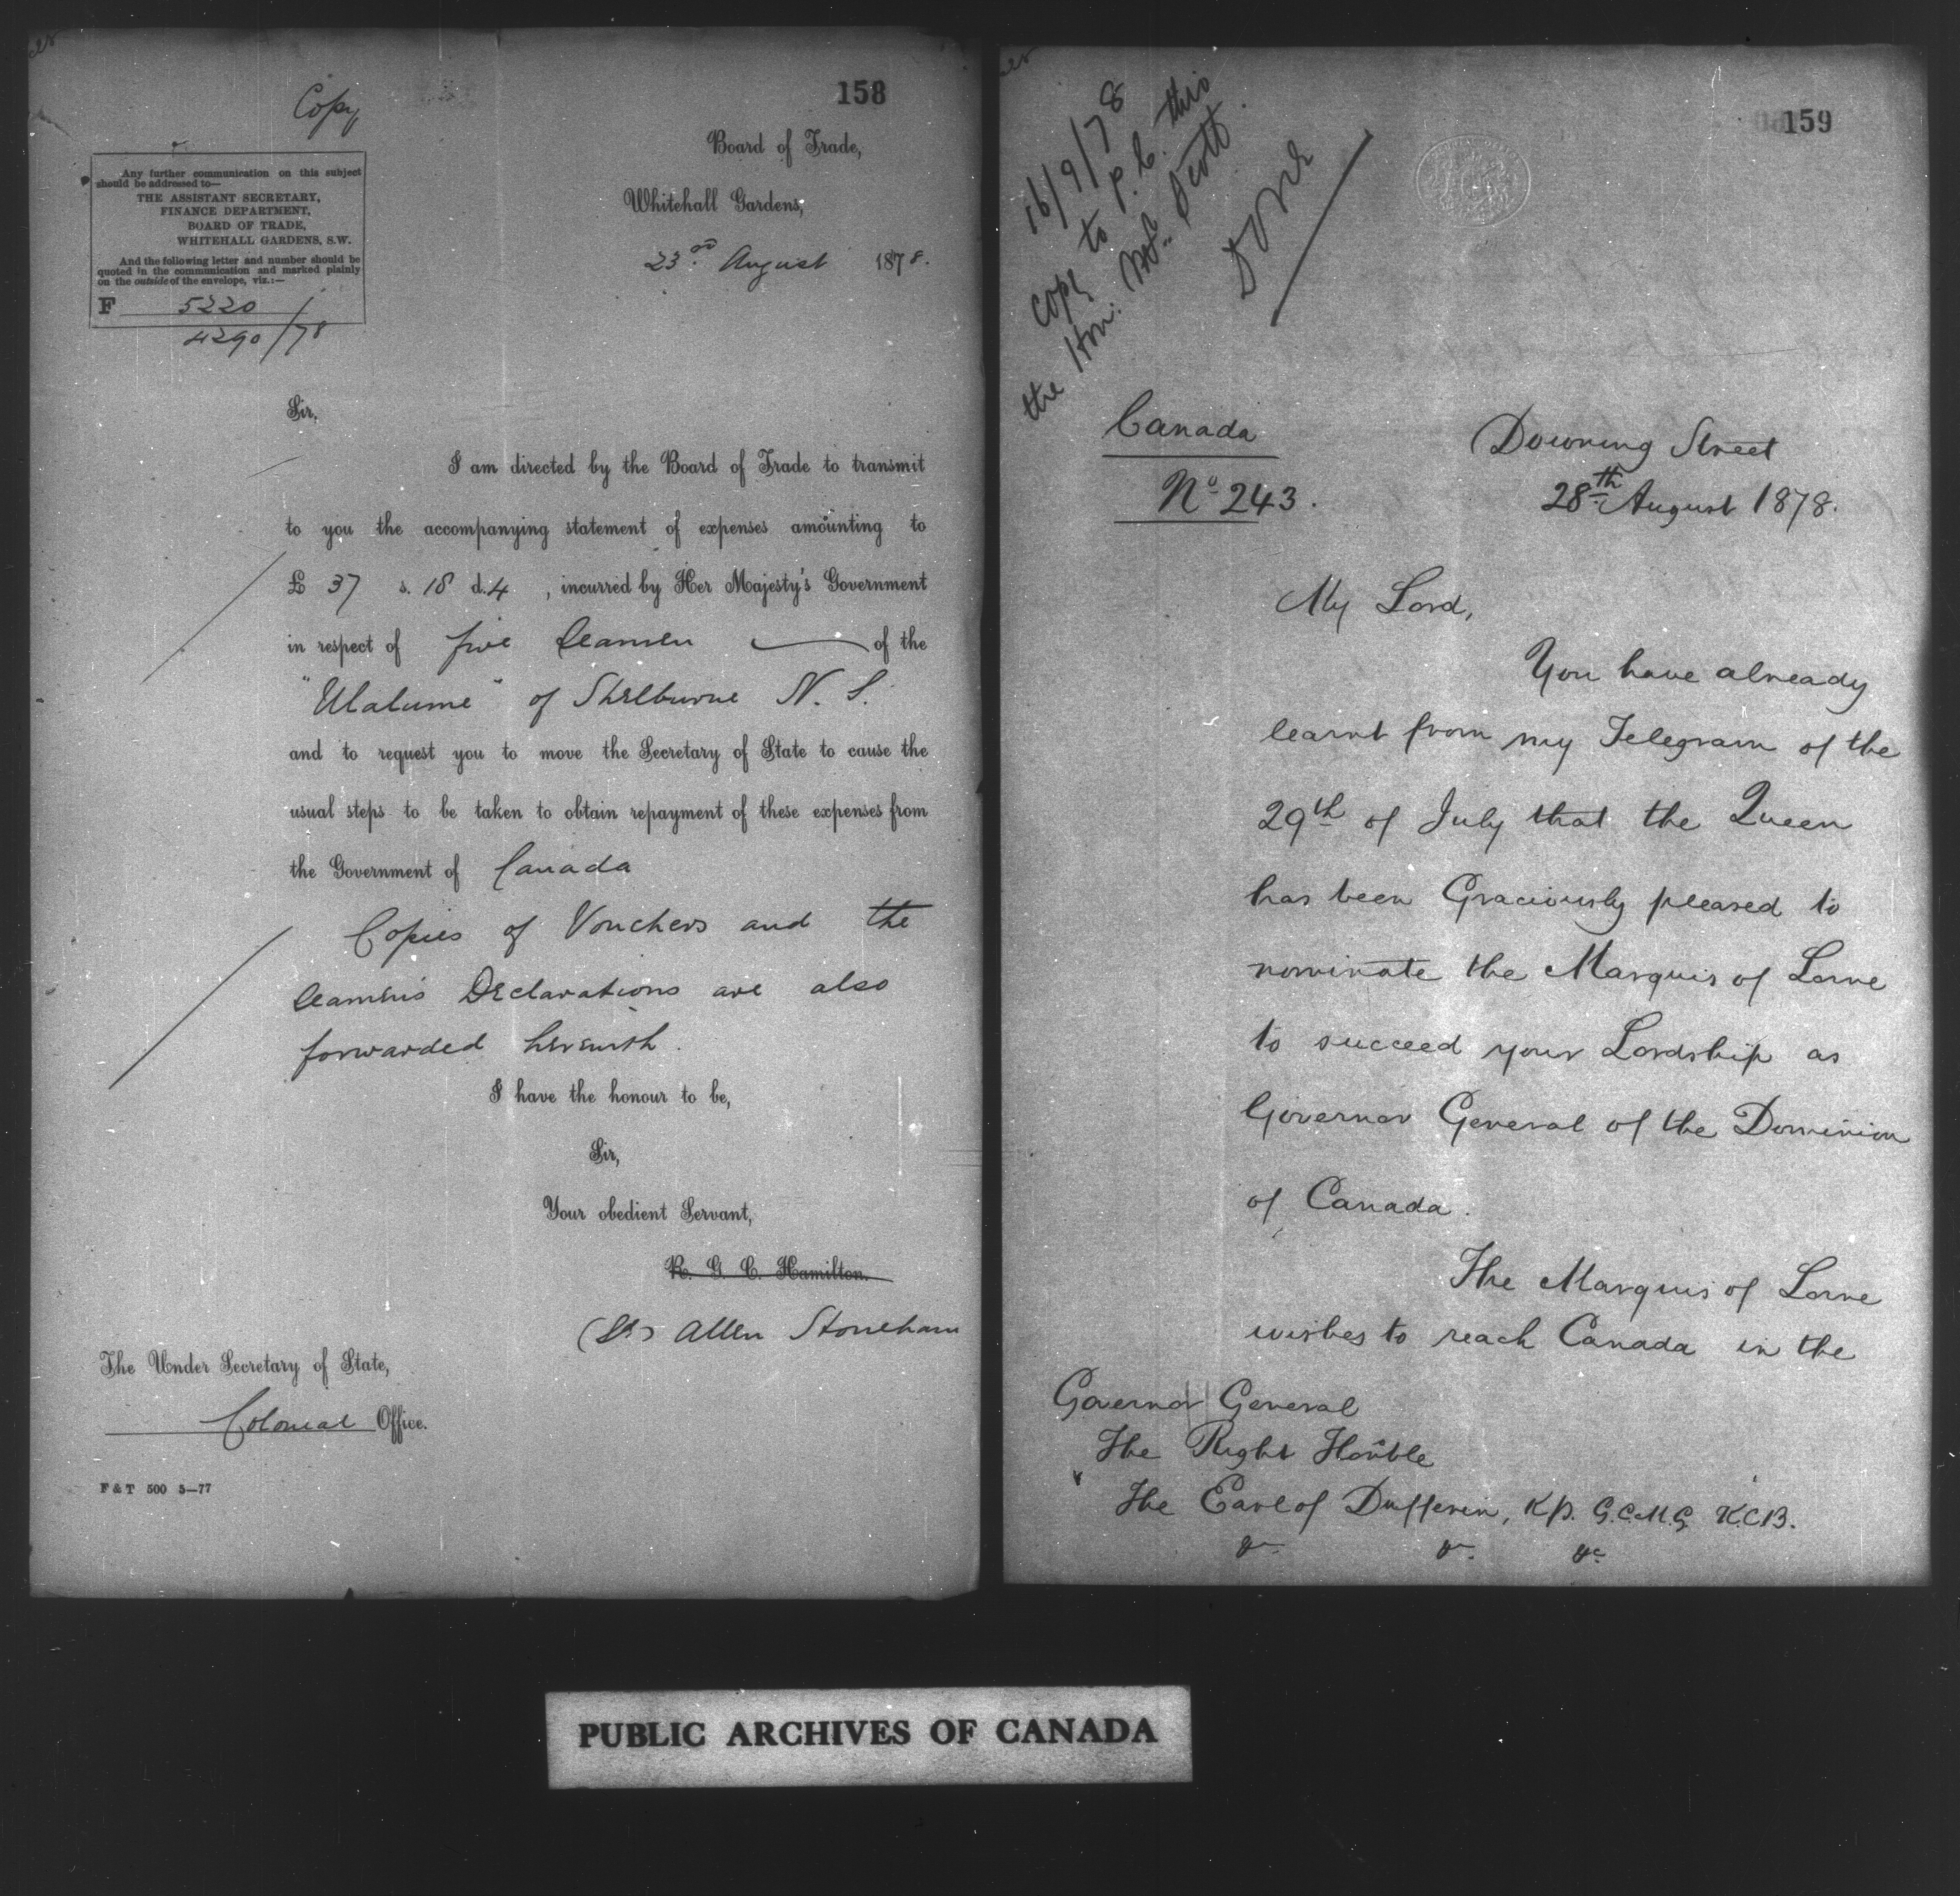 158
Copy
Board of Trade,
Whitehall Gardens,
23rd August 1878.
Any further communication on this subject
should be addressed to—
THE ASSISTANT SECRETARY,
FINANCE DEPARTMENT,
BOARD OF TRADE,
WHITEHALL GARDENS, S.W.
And the following letter and number should be
quoted in the communication and marked plainly
on the outside of the envelope, viz.:—
F 5220
4290/78
Sir,
I am directed by the Board of Trade to transmit
to you the accompanying statement of expenses amounting to
£ 37 s. 18 d. 4 , incurred by Her Majesty's Government
in respect of five Seamen of the
"Ulalume" of Shelburne N. S.
and to request you to move the Secretary of State to cause the
usual steps to be taken to obtain repayment of these expenses from
the Government of Canada
Copies of Vouchers and the
Seamen's Declarations are also
forwarded herewith.
I have the honour to be,
Sir,
Your obedient Servant,
R. G. C. Hamilton.
(Sd) Allen Stoneham
The Under Secretary of State,
Colonial Office.
F & T 500 5—77
159
16/9/78
Copy to p.c. this
the Hon. Mr. Scott.
Done
Canada
No. 243.
Downing Street
28th August 1878.
My Lord,
You have already
learnt from my Telegram of the
29th of July that the Queen
has been Graciously pleased to
nominate the Marquis of Lorne
to succeed your Lordship as
Governor General of the Dominion
of Canada.
The Marquis of Lorne
wishes to reach Canada in the
Governor General
The Right Honble
The Earl of Dufferin, K.P. G.C.M.G. K.C.B.
&c. &c. &c
PUBLIC ARCHIVES OF CANADA